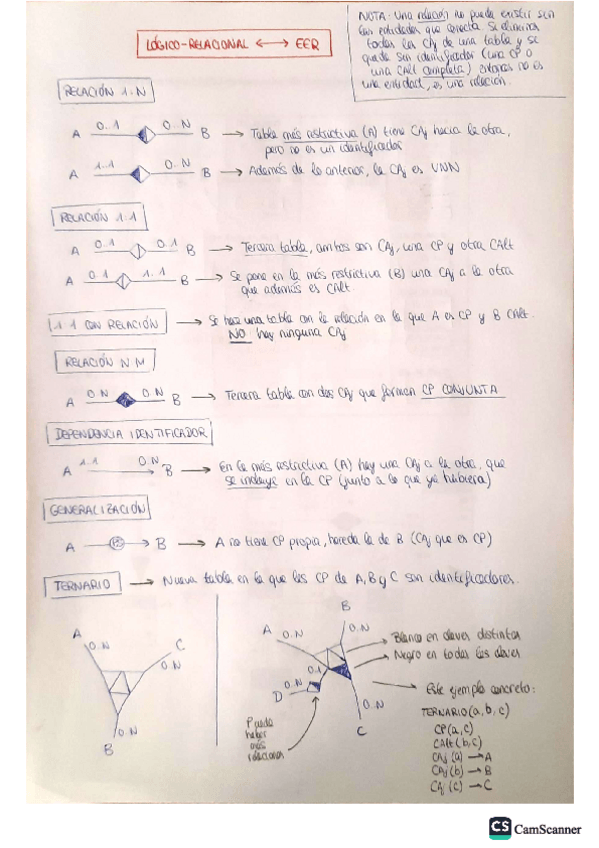 LÓGICO-RELACIONAL ⟷ EER
NOTA: Una relación no puede existir sin
las entidades que conecta. Si eliminas
todas las CAj de una tabla y se
queda sin identificador (una CP o
una CAlt completa) entonces no es
una entidad, es una relación.
RELACIÓN 1.N
A 0..1 0..N B → Tabla más restrictiva (A) tiene CAj hacia la otra,
pero no es un identificador
A 1..1 0..N B → Además de lo anterior, la CAj es VNN
RELACIÓN 1.1
A 0.1 0.1 B → Tercera tabla, ambos son CAj, una CP y otra CAlt
A 0.1 1..1 B → Se pone en la más restrictiva (B) una CAj a la otra
que además es CAlt.
1 1 CON RELACIÓN → Se hace una tabla con la relación en la que A es CP y B CAlt.
NO hay ninguna CAj
RELACIÓN N M
A 0.N 0.N B → Tercera tabla con dos CAj que forman CP CONJUNTA
DEPENDENCIA IDENTIFICADOR
A 1.1 0.N B → En la más restrictiva (A) hay una CAj a la otra, que
se incluye en la CP (junto a lo que ya hubiera)
GENERALIZACIÓN
A → B → A no tiene CP propia, hereda la de B (CAj que es CP)
TERNARIO → Nueva tabla en la que las CP de A, B y C son identificadores.
A
0..N
C
0..N
B
0..N
A
0..N
B
0..N
0.1
D
0..N
C
0..N
Puede
haber
más
relaciones
Blanco en claves distintas
Negro en todas las claves
Este ejemplo concreto:
TERNARIO (a, b, c)
CP (a, c)
CAlt (b, c)
CAj (a) → A
CAj (b) → B
CAj (c) → C
CS CamScanner